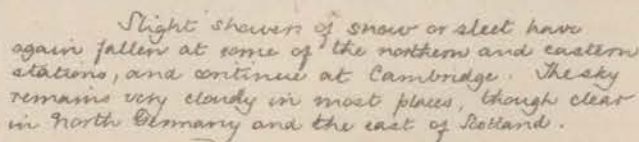 Slight showers of snow or sleet have
again fallen at some of the northern and eastern
stations, and continue at Cambridge. The sky
remains very cloudy in most places, though clear
in North Germany and the east of Scotland.